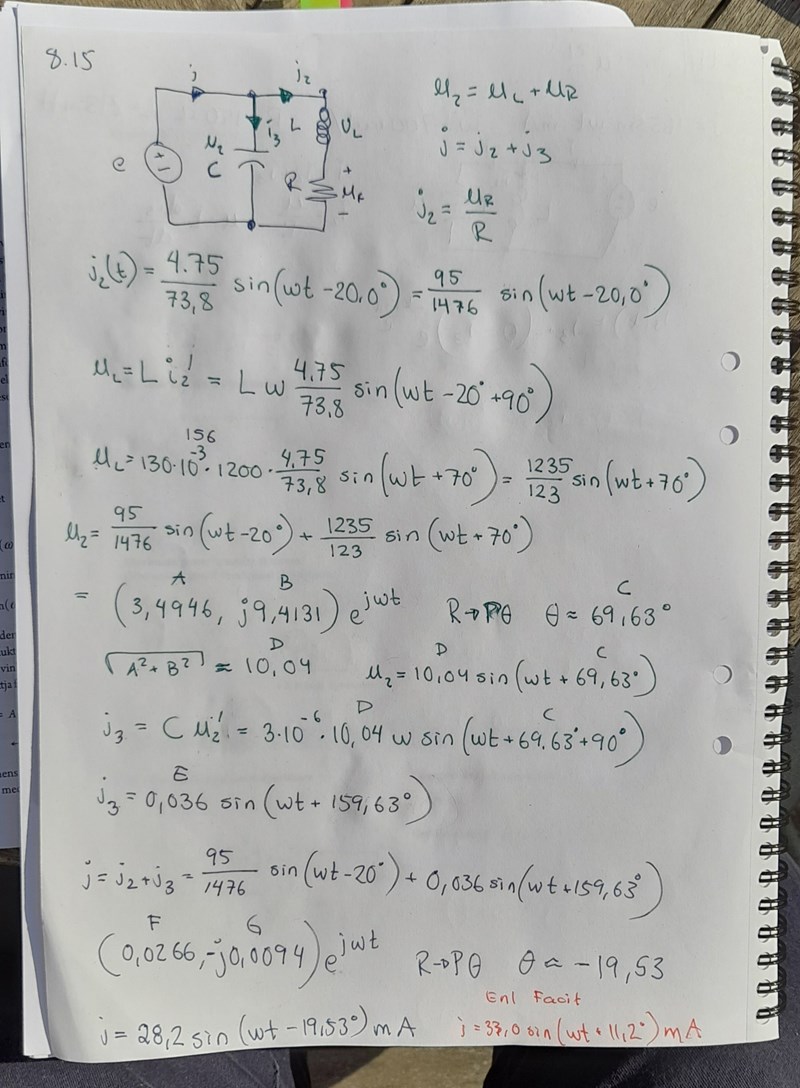 8.15
j
j₂
i₃
L
U_L
u₂
C
e
R
+
u_R
−
u₂ = u_L + u_R
j = j₂ + j₃
j₂ = u_R / R
j₂(t) = 4.75/73,8 sin(wt −20,0°) = 95/1476 sin(wt −20,0°)
u_L = L i₂' = L w 4,75/73,8 sin(wt −20° +90°)
156
u_L = 130·10⁻³·1200· 4,75/73,8 sin(wt +70°) = 1235/123 sin(wt +70°)
u₂ = 95/1476 sin(wt −20°) + 1235/123 sin(wt +70°)
A B C
= (3,4946, j9,4131) e^jwt R→Pθ θ ≈ 69,63°
D D C
√(A² + B²) ≈ 10,04 u₂ = 10,04 sin(wt + 69,63°)
D C
j₃ = C u₂' = 3·10⁻⁶·10,04 w sin(wt + 69.63° +90°)
E
j₃ = 0,036 sin(wt + 159,63°)
j = j₂ + j₃ = 95/1476 sin(wt −20°) + 0,036 sin(wt + 159,63°)
F G
(0,0266, −j0,0094) e^jwt R→Pθ θ ≈ −19,53
Enl Facit
j = 28,2 sin(wt −19,53°) mA j = 37,0 sin(wt + 11,2°) mA